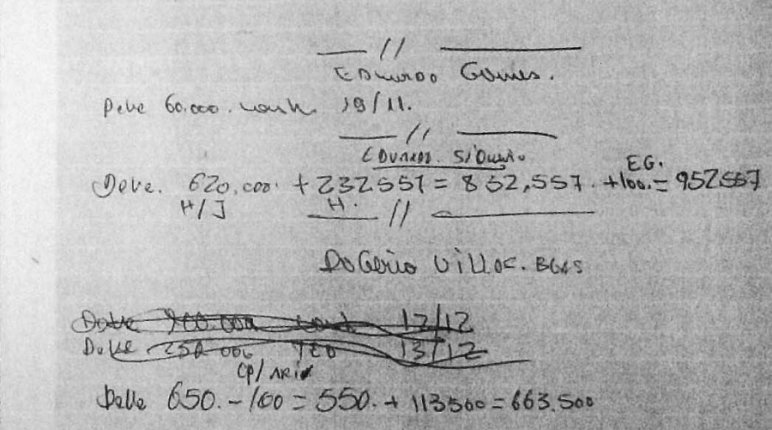 — // —
Eduardo Gomes.
Deve 60.000. 19/11.
— // —
Eduardo.
E.G.
Deve. 620.000. + 232557 = 852,557. +100. = 952557
H/J H.
— // —
Rogerio Villoc.
Deve 900.000 12/12
Deve 250 000 13/12
CP/
Deve 650. - 100 = 550. + 113500 = 663.500